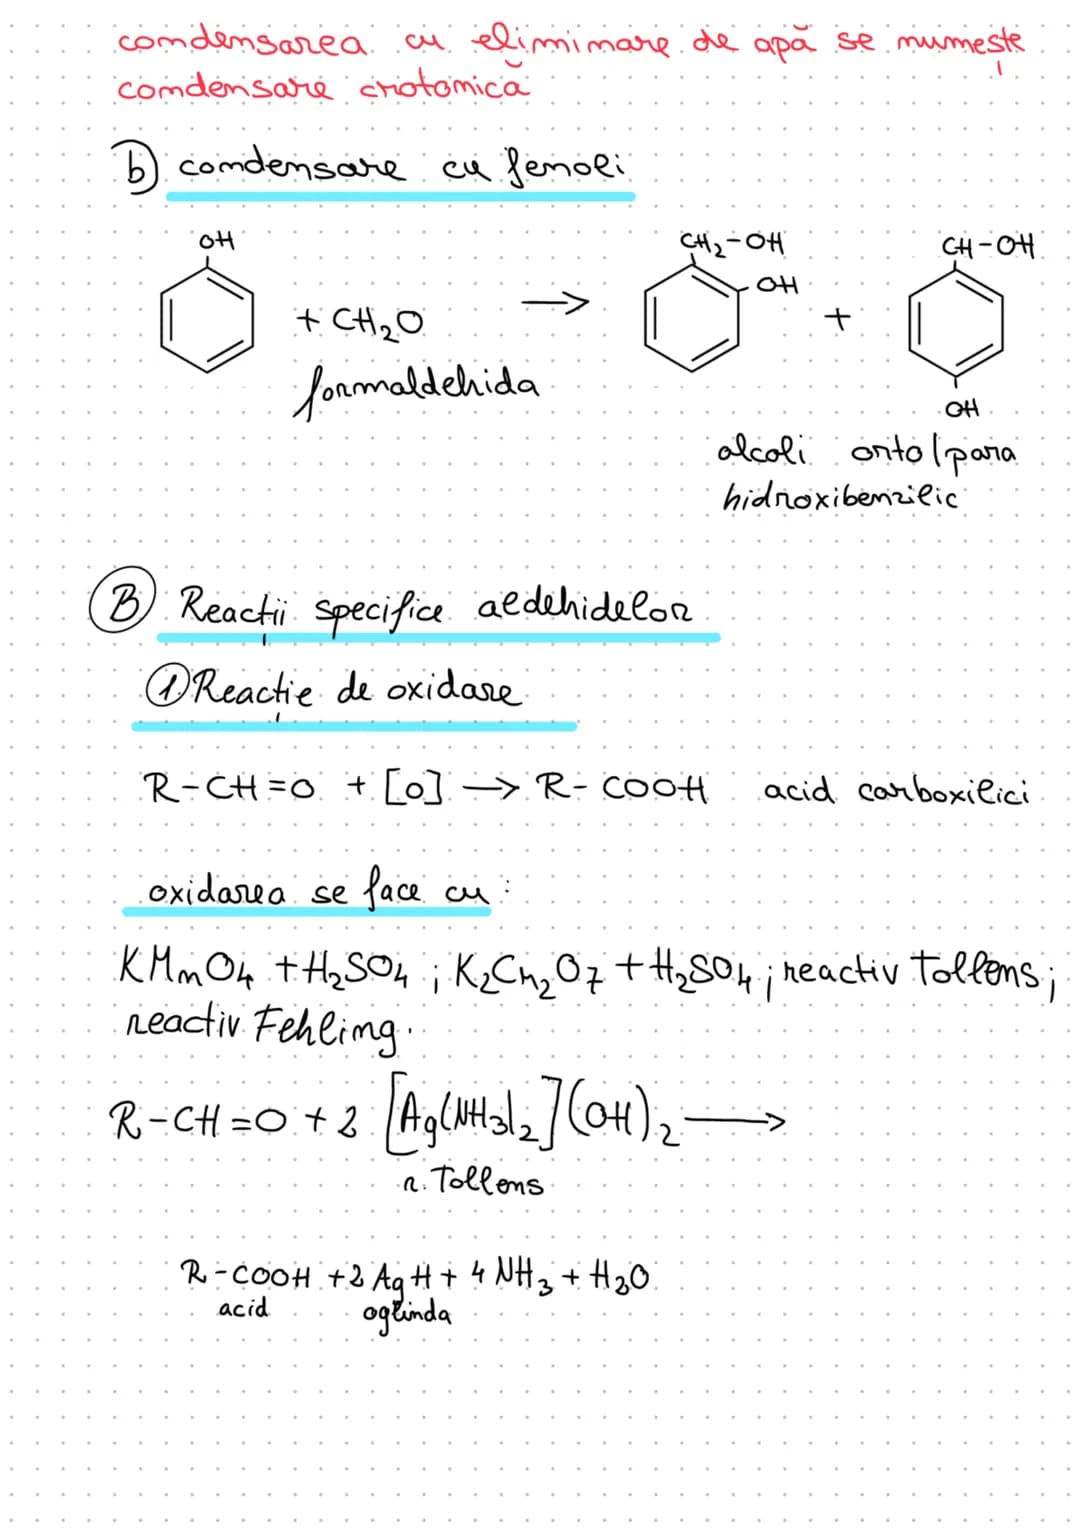 condensarea cu eliminare de apă se numește
condensare crotonică
b) condensare cu fenoli
OH
CH₂-OH
CH-OH
OH
+ CH₂O → +
formaldehida
OH
alcoli orto/para
hidroxibenzilic
B Reactții specifice aldehidelor
1. Reacție de oxidare
R-CH=O + [O] → R-COOH acid carboxilici
oxidarea se face cu:
KMnO4 + H₂SO4 ; K₂Cr₂O7 + H₂SO4 ; reactiv Tollens ;
reactiv Fehling.
R-CH=O + 2 [Ag(NH3)₂](OH)₂ →
r. Tollens
R-COOH + 2 AgH + 4 NH3 + H₂O
acid oglinda